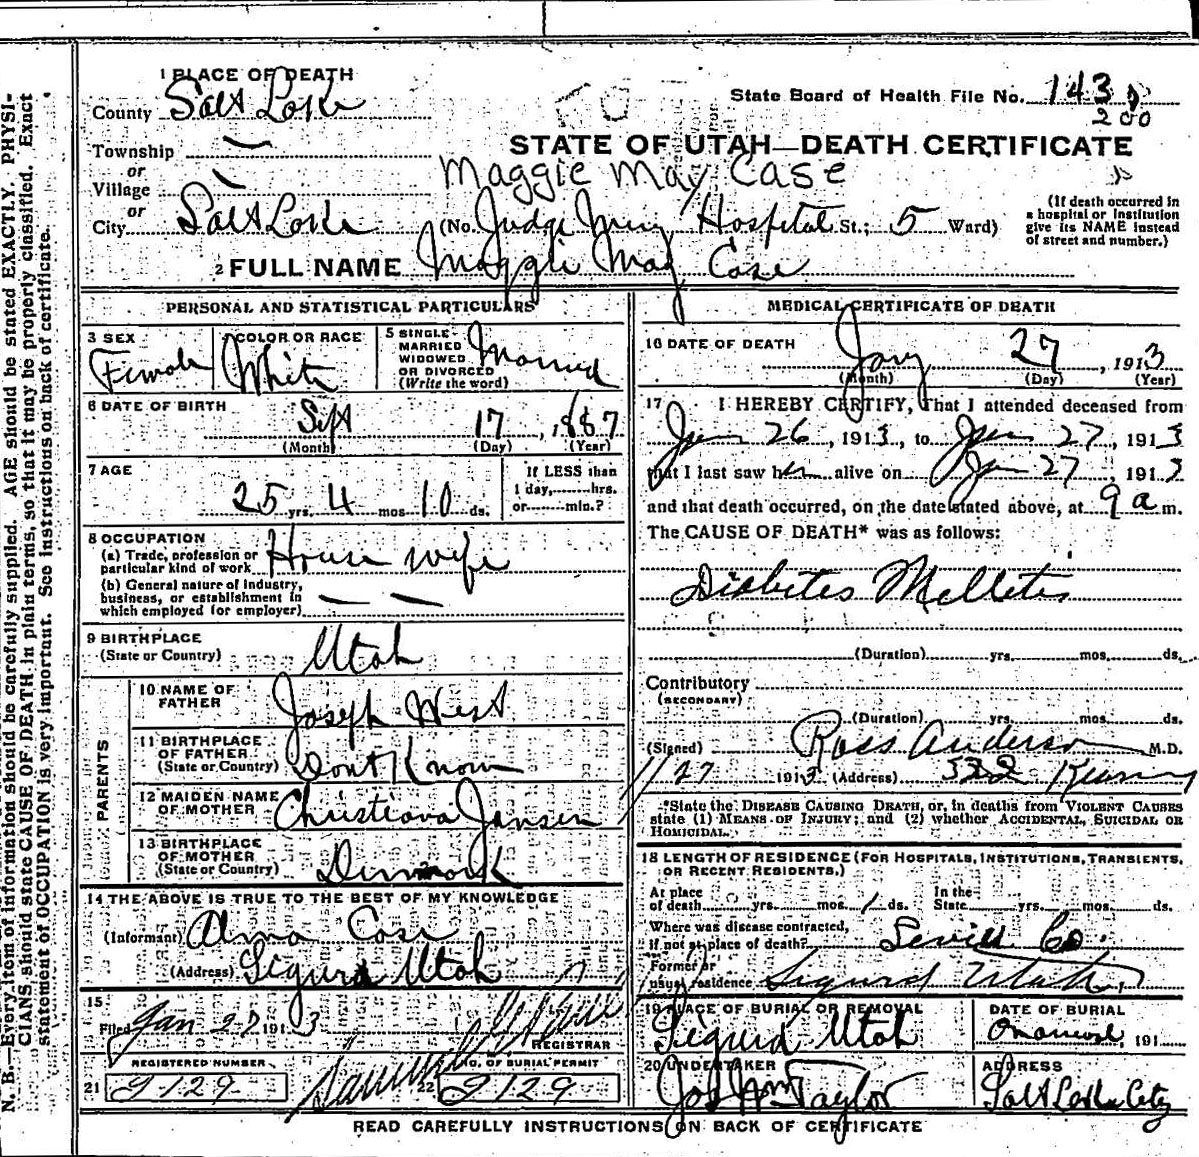 N. B.—Every item of information should be carefully supplied. AGE should be stated EXACTLY. PHYSI-
CIANS should state CAUSE OF DEATH in plain terms, so that it may be properly classified. Exact
statement of OCCUPATION is very important. See instructions on back of certificate.
1 PLACE OF DEATH
County Salt Lake
State Board of Health File No. 143
200
STATE OF UTAH—DEATH CERTIFICATE
Township —
or
Village
or
Maggie May Case
City Salt Lake (No. Judge Mercy Hospital St.; 5 Ward)
(If death occurred in
a hospital or institution
give its NAME instead
of street and number.)
2 FULL NAME Maggie May Case
PERSONAL AND STATISTICAL PARTICULARS
3 SEX Female
COLOR OR RACE White
5 SINGLE
MARRIED
WIDOWED
OR DIVORCED
(Write the word) Married
6 DATE OF BIRTH
Sept 17, 1887
(Month) (Day) (Year)
7 AGE
25 yrs. 4 mos 10 ds.
If LESS than
1 day,........hrs.
or........min.?
8 OCCUPATION
(a) Trade, profession or
particular kind of work House wife
(b) General nature of industry,
business, or establishment in
which employed (or employer) — —
9 BIRTHPLACE
(State or Country) Utah
PARENTS
10 NAME OF
FATHER Joseph West
11 BIRTHPLACE
OF FATHER
(State or Country) Dont Know
12 MAIDEN NAME
OF MOTHER Christiana Jensen
13 BIRTHPLACE
OF MOTHER
(State or Country) Denmark
14 THE ABOVE IS TRUE TO THE BEST OF MY KNOWLEDGE
(Informant) Alma Case
(Address) Sigurd Utah
15
Filed Jan 27 1913
REGISTRAR
REGISTERED NUMBER
21 J 129
NO. OF BURIAL PERMIT
22 J 129
MEDICAL CERTIFICATE OF DEATH
16 DATE OF DEATH
Jany 27, 1913
(Month) (Day) (Year)
17 I HEREBY CERTIFY, That I attended deceased from
Jan 26, 1913, to Jan 27, 1913
that I last saw her alive on Jan 27, 1913
and that death occurred, on the date stated above, at 9 a m.
The CAUSE OF DEATH* was as follows:
Diabetes Mellitis
(Duration) yrs. mos. ds.
Contributory
(SECONDARY)
(Duration) yrs. mos. ds.
(Signed) Ross Anderson M.D.
1/27 1913 (Address) 532 Kearns
*State the DISEASE CAUSING DEATH, or, in deaths from VIOLENT CAUSES
state (1) MEANS OF INJURY; and (2) whether ACCIDENTAL, SUICIDAL OR
HOMICIDAL.
18 LENGTH OF RESIDENCE (FOR HOSPITALS, INSTITUTIONS, TRANSIENTS,
OR RECENT RESIDENTS.)
At place
of death yrs. mos. 1 ds.
In the
State yrs. mos. ds.
Where was disease contracted,
if not at place of death? Sevier Co.
Former or
usual residence Sigurd Utah
19 PLACE OF BURIAL OR REMOVAL
Sigurd Utah
DATE OF BURIAL
191
20 UNDERTAKER
Jos Wm Taylor
ADDRESS
Salt Lake City
READ CAREFULLY INSTRUCTIONS ON BACK OF CERTIFICATE